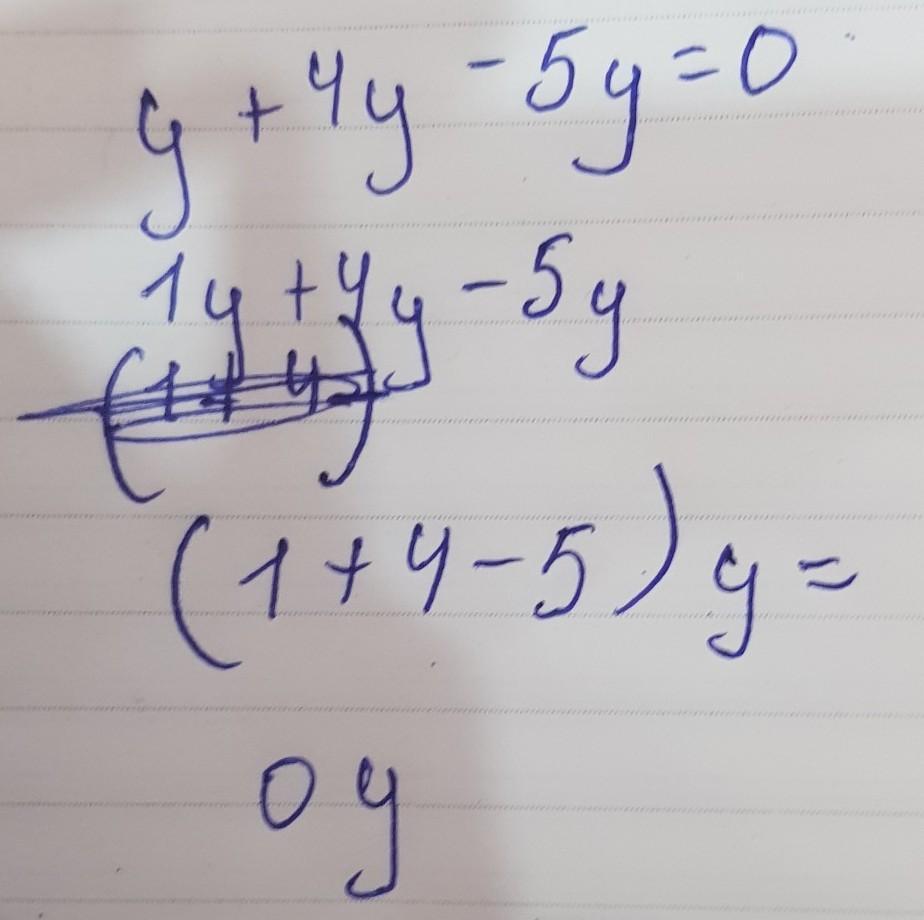 y + 4y - 5y = 0
1y + 4y - 5y
(1 + 4)
(1 + 4 - 5) y =
0 y